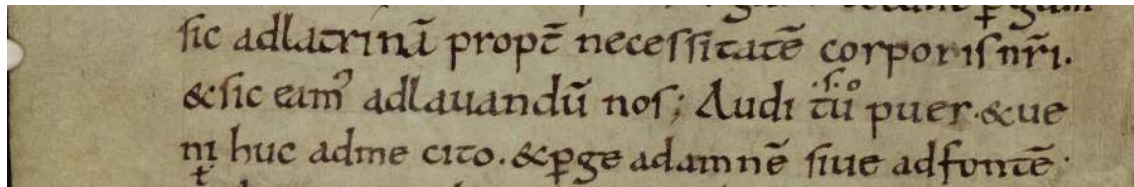 sic adlatrinā propt̄ necessitatē corporis nr̄i.
&sic eam᾽ adlauandū nos; Audi tu puer·&ue
ni huc adme cito.&ꝑge adamnē siue adfontē·